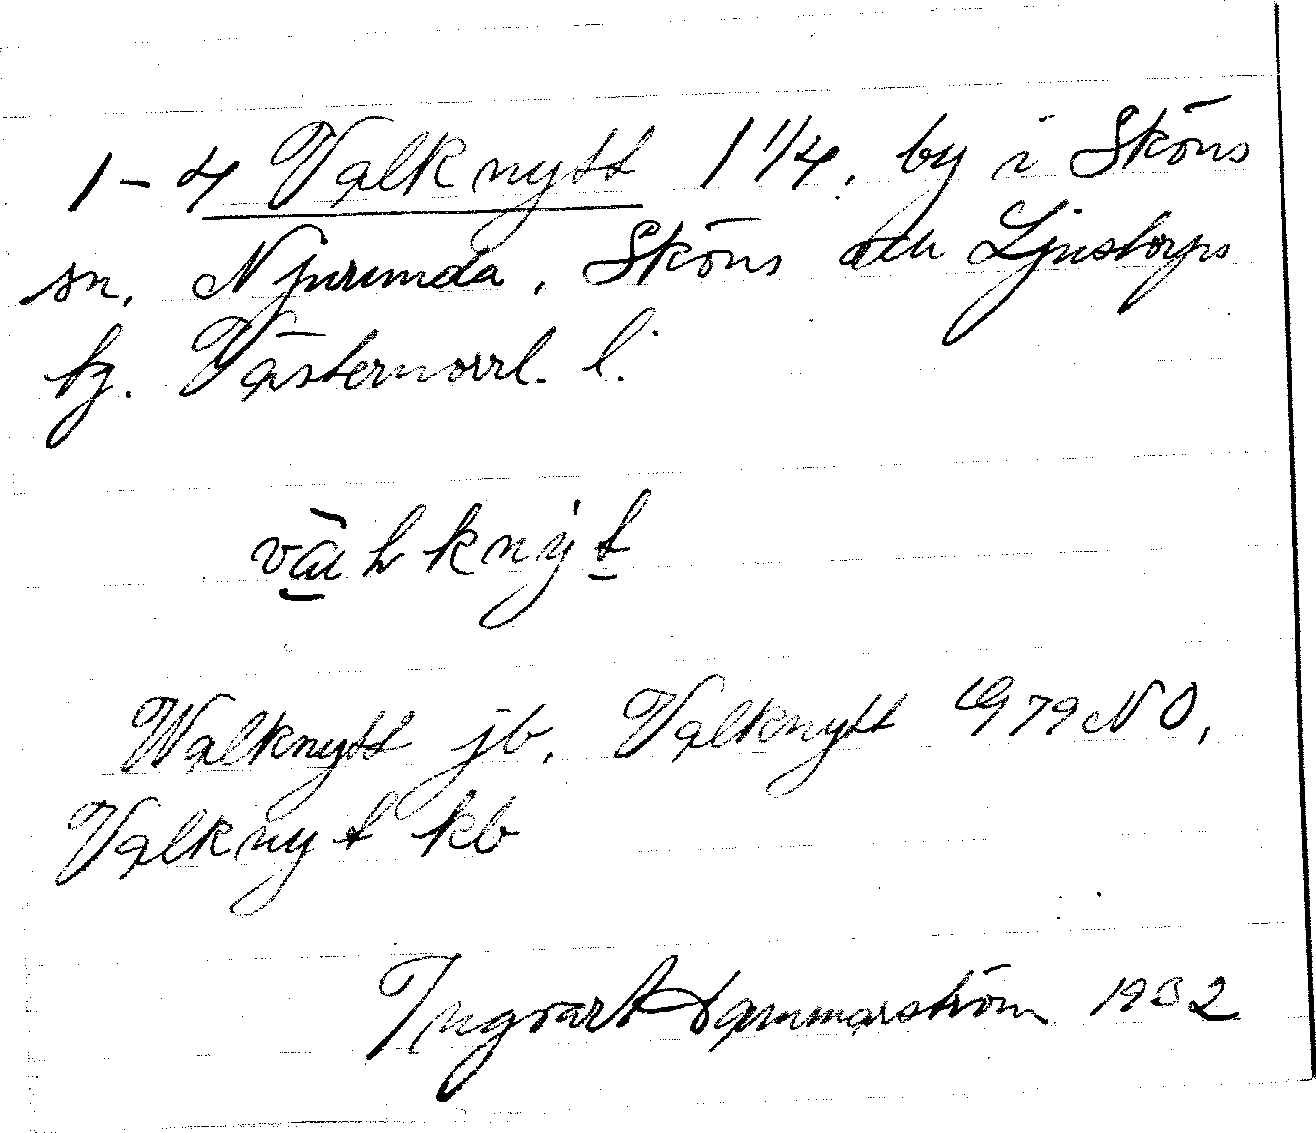 1-4 Valknytt 1 1/4, by i Sköns
sn, Njurunda, Sköns och Ljustorps
tg. Västernorrl. l.
knýt
Walknytt jb, Valknytt G 79 NO,
Valknyt kb
Ingvart Hammarström 1932